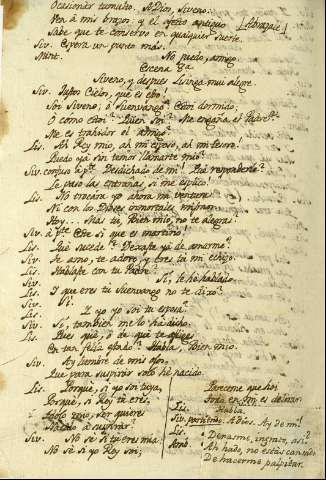 Ocasionar tumulto. A Dios, Siveno.
Ven à mis brazos: y el afecto antiguo [Abrazale]
Sabe que te conservo en qualquier suerte.
Siv. Espera un punto mas.
Mint. No puedo, amigo
Escena 8ª
Siveno, y despues Lisinga muy alegre.
Siv. Justos Cielos, que es esto!
Soi Siveno; ò Suenvango? Estoi dormido,
O como estoi? Quien soi? Me engaña el
Me es trahidor el amigo?
Lis. Ah Rey mio, ah mi esposo, ah mi
Puedo ya sin temor llamarte mio?
Siv. Desdichado de mi! Què responderè?
Le paso las entrañas, si me esplico.
Lis. No trocara yo ahora mi ventura
Ni con los Dioses inmortales mismos.
Hoy... Mas tu, Bien mio, no te alegras?
Siv. Este si que es martirio!
Lis. Què sucede? Dexaste ya de amarme?
Siv. Te amo, te adoro, y eres tu mi echizo.
Lis. Hablaste con tu Padre?
Siv. Si, le he hablado.
Lis. I que eres tu Suenvango no te dixo?
Siv. Si.
Lis. I yo soi tu esposa?
Siv. Si, tambien me lo ha dicho.
Lis. Pues què, ò de què te afliges
En tan feliz estado? Habla, Bien mio.
Siv. Ay lumbre de mis ojos,
Que para suspirar solo he nacido.
Lis. Porquè, si yo soi tuya,
Porquè, si Rey tu eres,
Idolo mio, ser quieres
Nacido à suspirar?
Siv. No sè si tu eres mia:
No sè si yo Rey soi;
Pareceme que hoi
Todo en son es delirar.
Lis. Habla.
Siv. partiendo. A Dios. Ay de mi!
Lis. Dexasme, ingrato, asi?
Ah hado, no estás cansado
De hacerme palpitar.